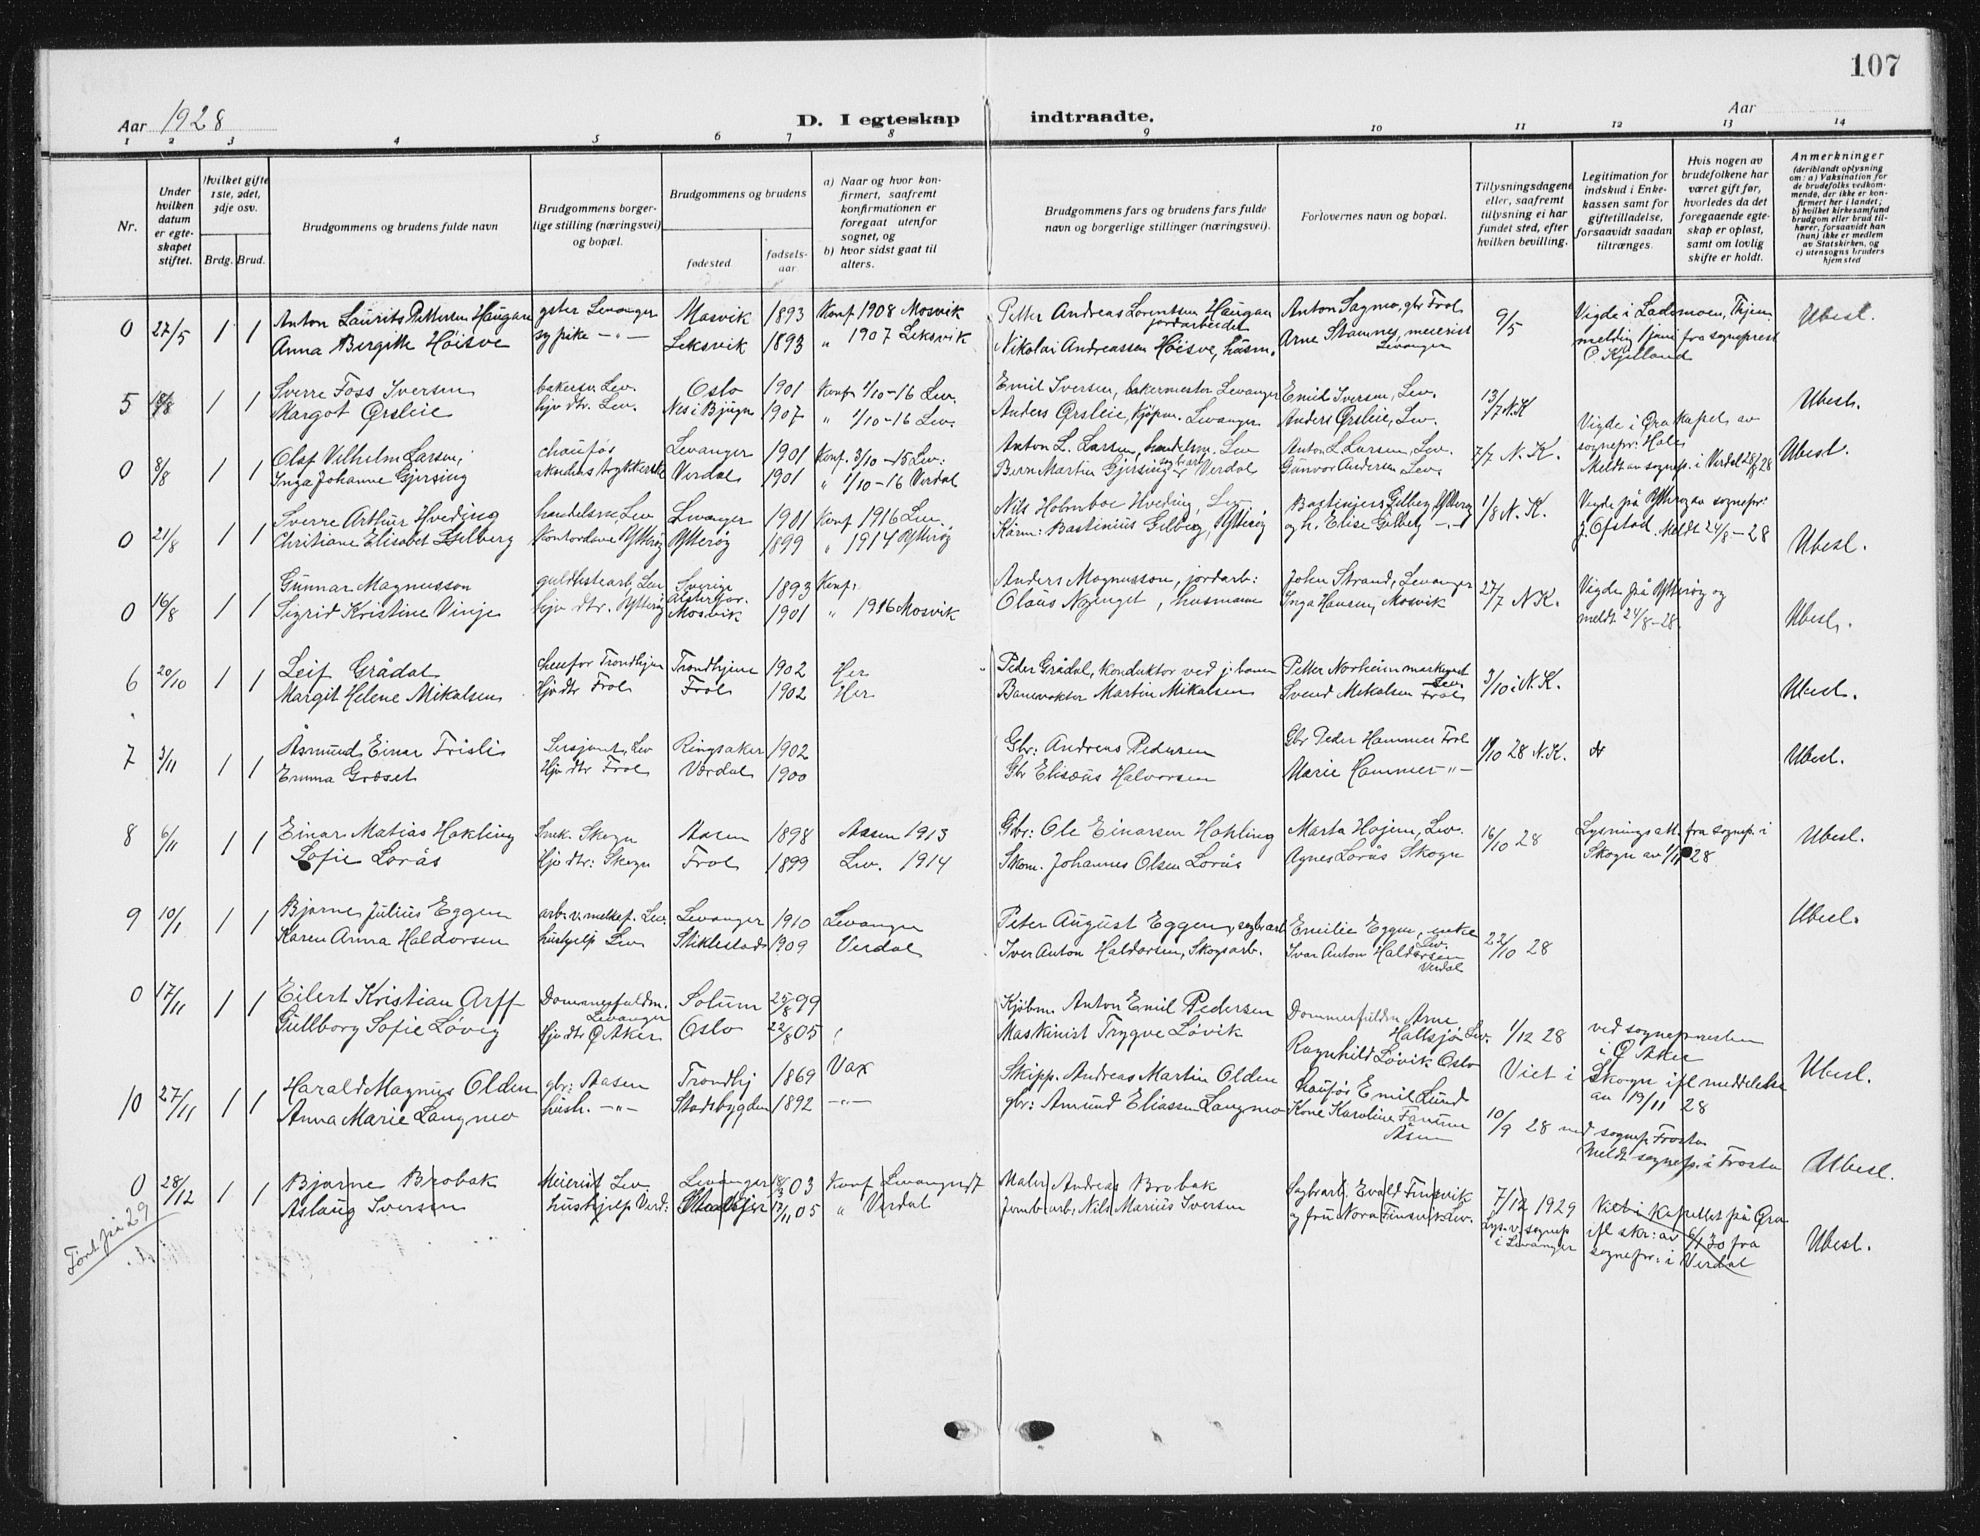 107
Aar 1928
D. I egteskap indtraadte.
Aar
1 2 3 4 5 6 7 8 9 10 11 12 13 14
Nr.
Under hvilken datum er egteskapet stiftet.
Hvilket gifte 1ste, 2det, 3dje osv.
Brdg. Brud.
Brudgommens og brudens fulde navn
Brudgommens borgerlige stilling (næringsvei) og bopæl.
Brudgommens og brudens
fødested.
fødselsaar
a) Naar og hvor konfirmert, saafremt konfirmationen er foregaat utenfor sognet, og
b) hvor sidst gaat til alters.
Brudgommens fars og brudens fars fulde navn og borgerlige stillinger (næringsvei).
Forlovernes navn og bopæl.
Tillysningsdagene eller, saafremt tillysning ei har fundet sted, efter hvilken bevilling.
Legitimation for indskud i Enkekassen samt for giftetilladelse, forsaavidt saadan tiltrænges.
Hvis nogen av brudefolkene har været gift før, hvorledes da det foregaaende egteskap er opløst, samt om lovlig skifte er holdt.
Anmerkninger
(deriblandt oplysning om: a) Vaksination for de brudefolks vedkommende, der ikke er konfirmert her i landet; b) hvilket kirkesamfund brudgom eller brud tilhører, forsaavidt han (hun) ikke er medlem av Statskirken, og c) utensogns bruders hjemsted
0 27/5 1 1 Anton Laurits Pettersen Haugan Levanger Mosvik 1893 Konf 1908 Mosvik Petter Andreas Lorentsen Haugan jordarbeider Anton Sagmo, gbr Frol 9/5 Vigde i Lademoen, Thjem
Anna Bergitte Höisve sypike -"- Leksvik 1893 " 1907 Leksvik Nikolai Andreassen Höisve, husm. Arne Stamnes, meierist Levanger melding 1 juni fra sogneprest Ubesl.
5 18/8 1 1 Sverre Foss Iversen bakersv. Lev. Oslo 1901 Konf 1/10-16 Lev. Emil Iversen, bakermester Levanger Emil Iversen, Lev. 13/7 N.K
Margot Ørsleie hjv dtr. Lev. Nes i Bjugn 1907 " 1/10-16 Lev. Anders Ørsleie, Kjøpm. Levanger Anders Ørsleie, Lev. Ubesl.
0 8/8 1 1 Olaf Vilhelm Larsen, Levanger 1901 Konf. 3/10-15 Lev: Anton L. Larsen, handelsm. Lev Anton L Larsen, Lev. 7/7 N.K. Vigde i Øra Kapel av sognepr: Hole
Inga Johanne Gjersing Verdal 1901 " 1/10-16 Verdal Martin Gjersing Verdal Gunvor Andersen Lev. Meldt av sognep. i Verdal 28/8 28 Ubesl.
0 21/8 1 1 Sverre Arthur Hveding Lev Levanger 1901 Konf 1916 Lev. Nils Holmboe Hveding, Lev Gilberg Ytterøy 1/8 N.K. Vigde på Ytterøy av sognepr:
Christiane Elisabet Gilberg Ytterøy Ytterøy 1899 " 1914 Ytterøy Bastinius Gilberg, Ytterøy og h. Elise Gilberg -"- J. Ofstad. Meldt 24/8-28 Ubesl.
0 16/8 1 1 Gunnar Magnusson Lev Sverige 1893 Konf. Anders Magnusson, jordarb: John Strand, Levanger 27/7 N.K. Vigde på Ytterøy og
Sigrid Kristine Vinje hjv dtr. Ytterøy Mosvik 1901 " 1916 Mosvik Olaus , husmann Inga Hansen, Mosvik meldt 24/8-28. Ubesl.
6 20/10 1 1 Leif Grådal Trondhjem Trondhjem 1902 Her Peder Grådal, Konduktør ved j.banen Petter Norheim Lev. 3/10 i N.K.
Margit Helene Mikalsen Hjv dtr Frol Frol 1902 Her Banevokter Martin Mikalsen Svend Mikalsen Frol Ubesl.
7 3/11 1 1 Åsmund Einar Frisli Sersjant, Lev Ringsaker 1902 Gbr: Andreas Pedersen Gbr Peder Hammer Frol /10 28 N.K.
Emma Græset Hjv dtr Frol Værdal 1900 Gbr Elisæus Halvorsen Marie Hammer -"- Ubesl.
8 6/11 1 1 Einar Matias Hokling Skogn Aasen 1898 Aasen 1913 Gbr: Ole Einarsen Hokling Marta Hojem, Lev. 16/10 28 Lysningsatt. fra sognep. i
Sofie Lorås Hjv dtr: Skogn Frol 1899 Lev. 1914 Skom. Johannes Olsen Lorås Agnes Lorås Skogn Skogn av 1/11 28 Ubesl.
9 10/1 1 1 Bjarne Julius Eggen arb. v. melkef. Lev. Levanger 1910 Levanger Peter August Eggen, sagbr.arb Emilie Eggen, enke Lev. 22/10 28
Karen Anna Haldorsen hushjelp Lev Stiklestad 1909 Verdal Iver Anton Haldorsen, Skogsarb. Ivar Anton Haldorsen Verdal Ubesl.
0 17/11 1 1 Eilert Kristian Arff Dommerfuldm. Levanger Solum 25/8 99 Kjøbm. Anton Emil Pedersen Dommerfuldm Arne Hallsjø Lev. 1/12 28 ved sognepresten
Gullborg Sofie Løvig Hjv dtr Ø Aker Oslo 22/8 05 Maskinist Trygve Løvik Ragnhild Løvik Oslo i Ø Aker
10 27/11 1 1 Harald Magnus Olden gbr: Aasen Trondhj 1869 Vax Skipp. Andreas Martin Olden Chaufør Emil Lund Viet i Skogn ifl meddelelse av 19/11 28 Ubesl.
Anna Marie Langmo hush. -"- Stadsbygden 1892 -"- gbr: Amund Eliassen Langmo Kone Karoline Åsen 10/9 28 ved sognep. Frosta
Meldt sognep. i Frosta Ubesl.
0 28/12 1 1 Bjarne Brobak Meierist Lev Levanger 18/3 03 Konf Levanger 17 Maler Andreas Brobak Sagbrarb. Evald Finsvik 7/12 1929 Viet i Kapellet på Øra
Aslaug Iversen hushjelp Verd: 17/11 05 " Verdal Jernb arb. Nils Marius Iversen og fru Nora Finsvik Lev. Lys. v. sognep i Levanger ifl skr: av 6/1 30 fra sognepr. i Verdal Ubesl.
29